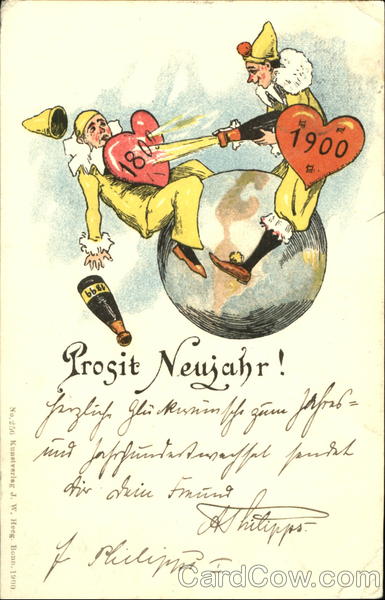 1800
1900
1899
Prosit Neujahr!
Herzliche Glückwünsche zum Jahres=
und Jahrhundertwechsel sendet
dir dein Freund
A Philipps
Philipps
No. 256 Kunstverlag J. W. Heeg. Bonn. 1900
CardCow.com